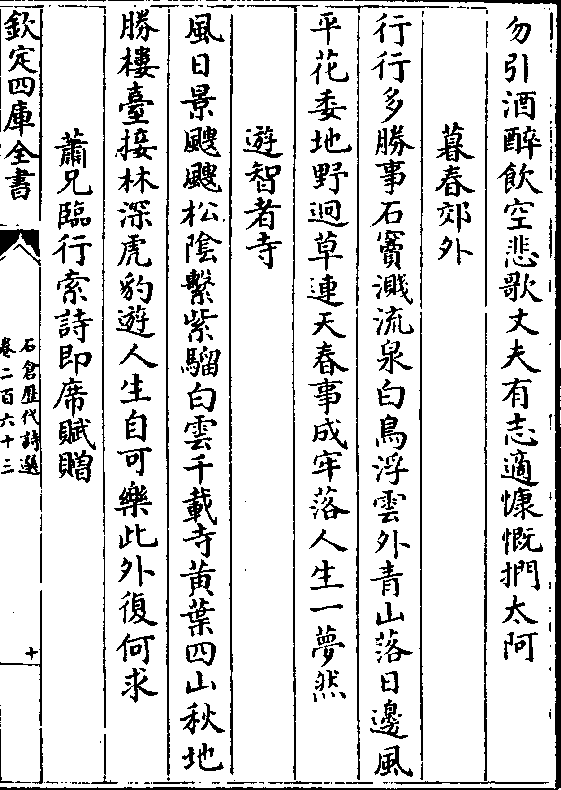 勿引酒醉飲空悲歌丈夫有志適慷慨捫太阿
暮春郊外
行行多勝事石竇濺流泉白鳥浮雲外青山落日邊風
平花委地野迥草連天春事成牢落人生一夢然
遊智者寺
風日景颼颼松陰繫紫騮白雲千載寺黃葉四山秋地
勝樓臺接林深虎豹遊人生自可樂此外復何求
蕭兄臨行索詩即席賦贈
欽定四庫全書
石倉歷代詩選
卷二百六十三
十